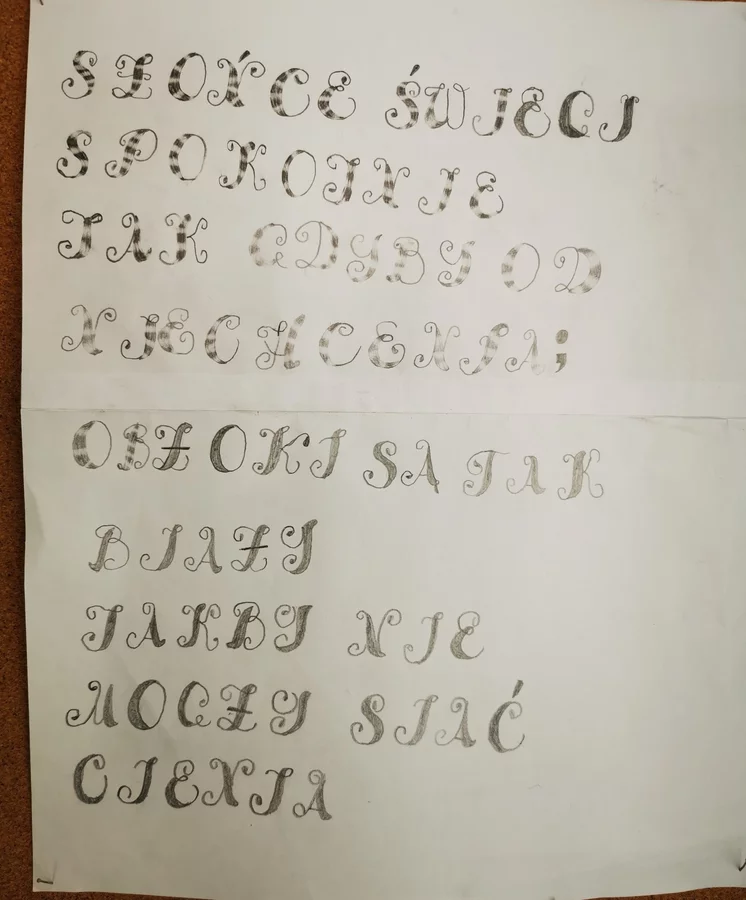 SŁOŃCE ŚWIECI
SPOKOJNIE
JAK GDYBY OD
NIECHCENIA;
OBŁOKI SĄ TAK
BIAŁY
JAKBY NIE
MOGŁY SIAĆ
CIENIA